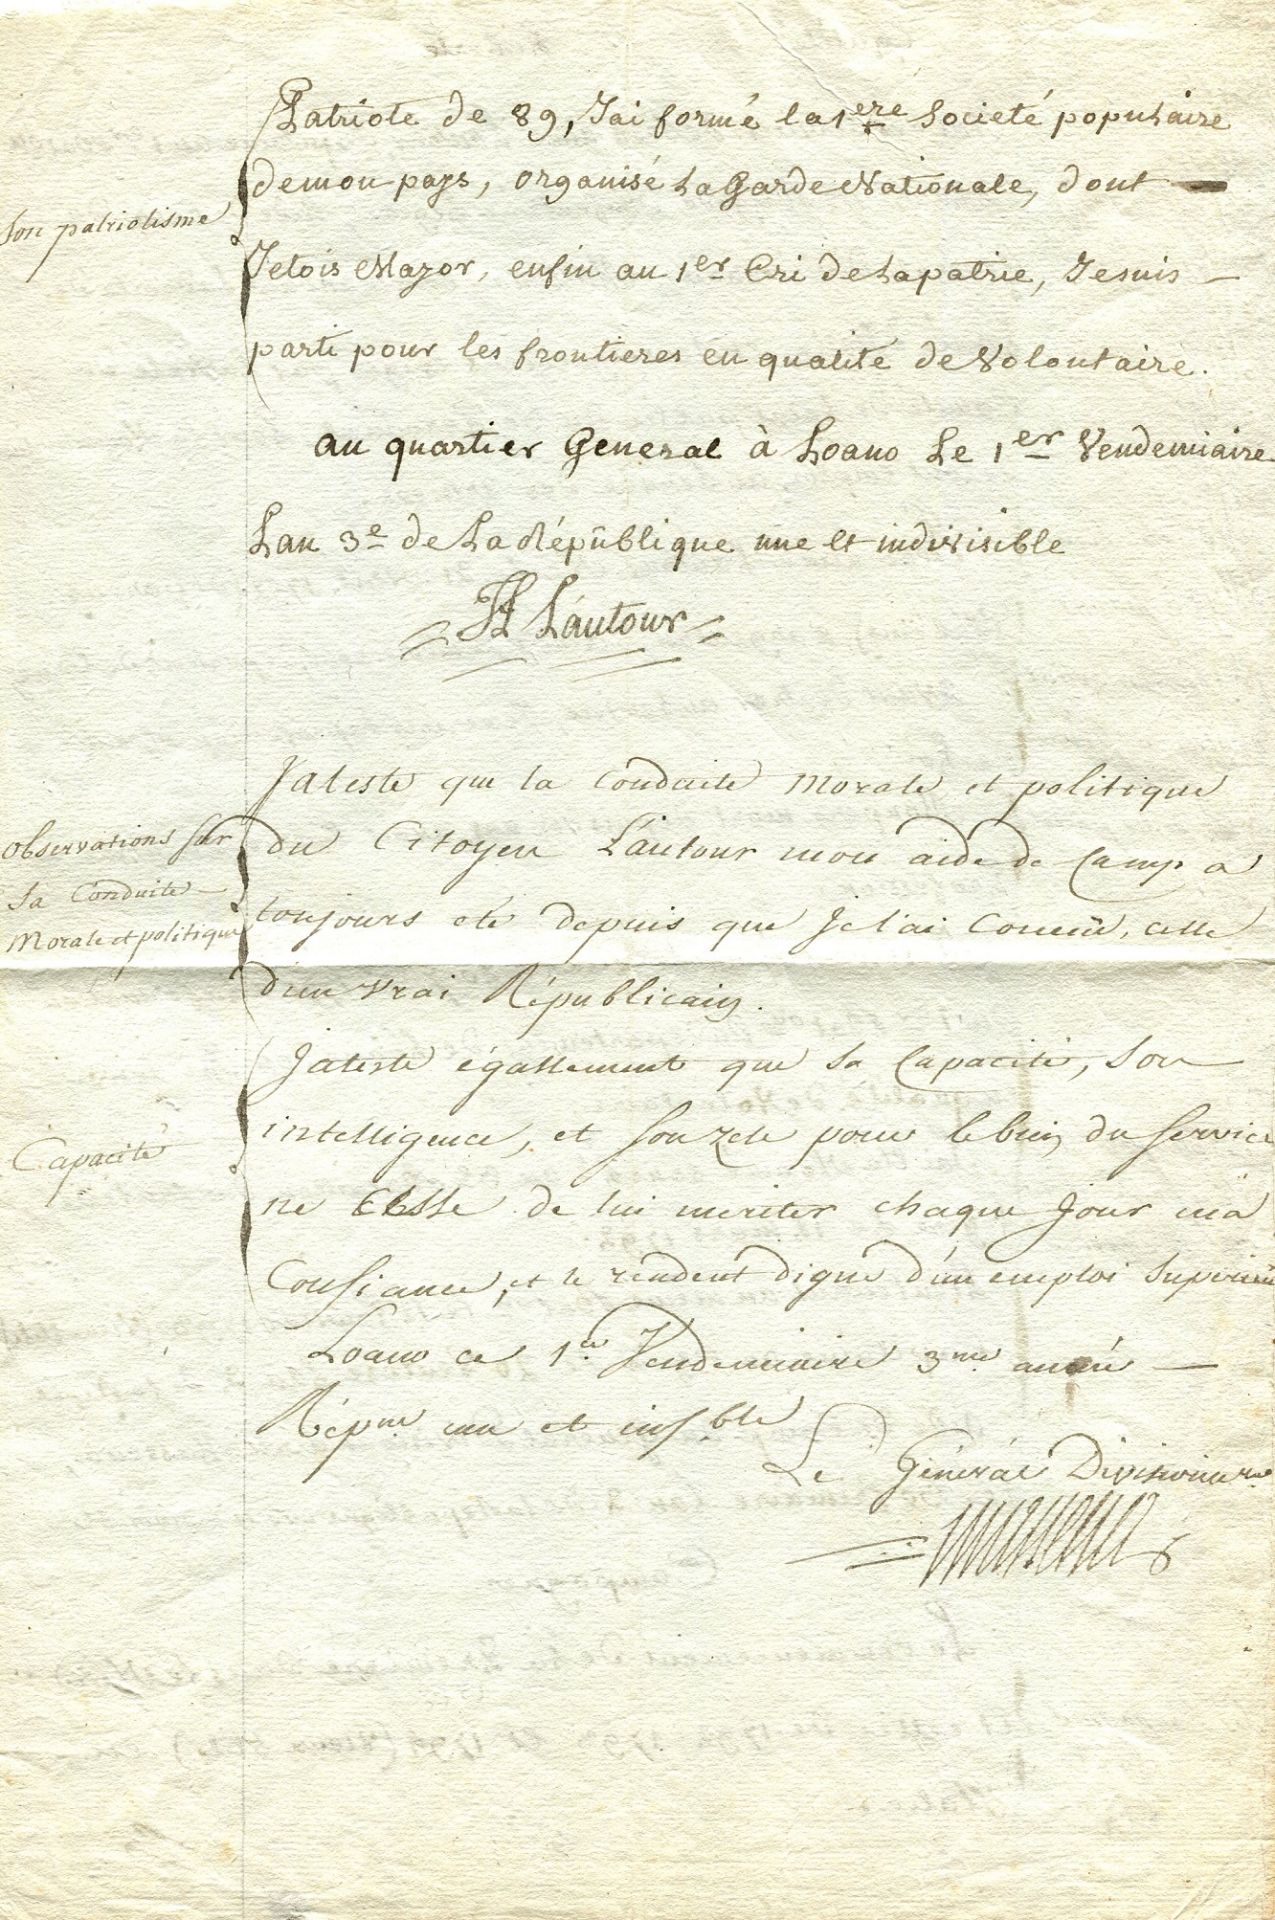 Patriote de 89, J'ai formé la 1ere Société populaire
de mon pays, organisé La Garde Nationale, dont
Son patriotisme
J'etois Major, enfin au 1er Cri de La patrie, Je suis
parti pour les frontieres en qualité de Volontaire.
au quartier General à Loano Le 1er Vendemiaire
Lan 3e de La République une et indivisible
Lautour
J'ateste que la Conduite Morale et politique
du Citoyen Lautour mon aide de Camp a
toujours eté depuis que Je l'ai Connû, celle
d'un vrai Républicain.
Observations sur
Sa Conduite
Morale et politique
J'ateste égallement que sa Capacité, Son
intelligence, et Son zele pour le bien du Service
Capacité
ne Cesse de lui meriter chaque Jour ma
Confiance, et le rendent digne d'un emploi Superieur
Loano ce 1er Vendemiaire 3me année
Répque une et insble
Le Général Divisionnaire
Massena